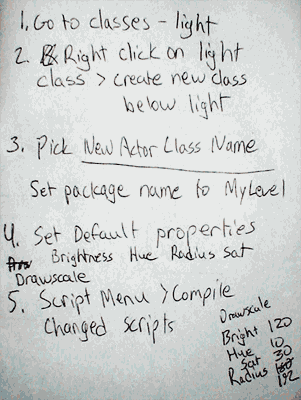 1. Go to classes - light
2. Right click on light
class > create new class
below light
3. Pick New Actor Class Name
Set package name to MyLevel
4. Set Default properties
Brightness Hue Radius Sat
Drawscale
5. Script Menu > Compile
Changed scripts
Drawscale
Bright 120
Hue 10
Sat 30
Radius 192